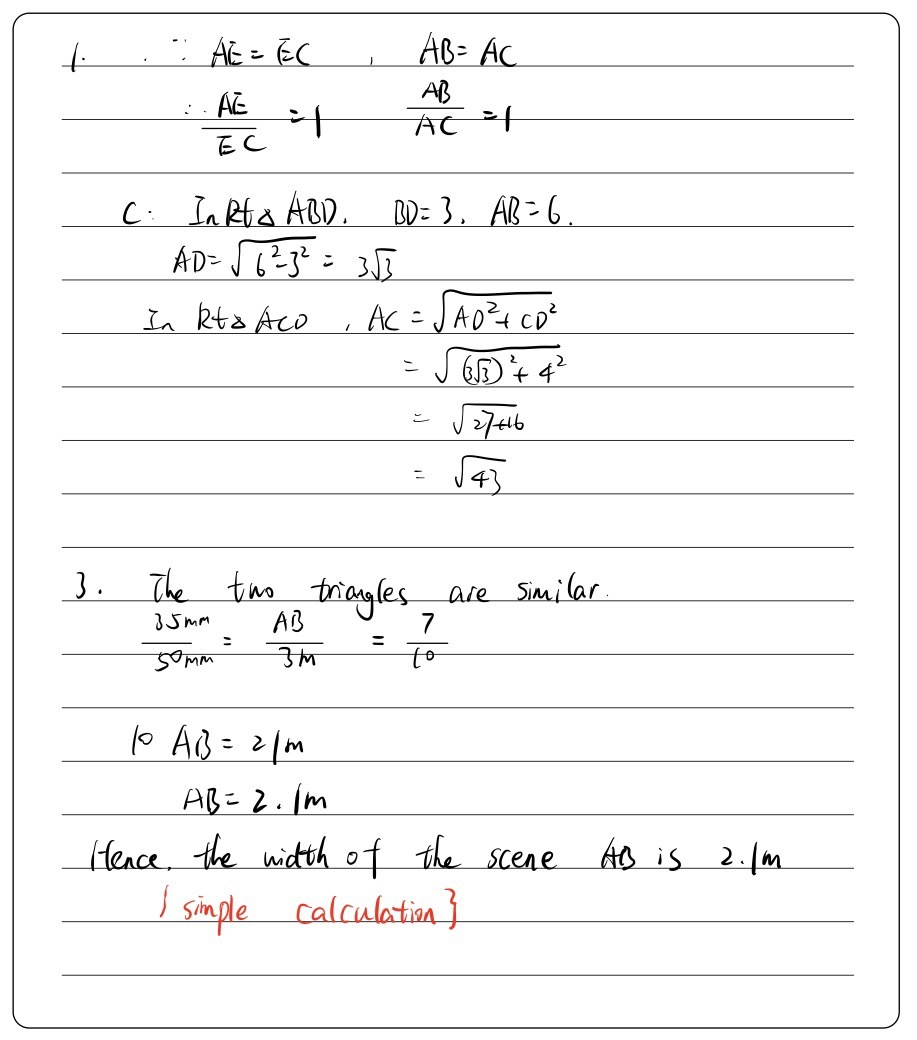 1. ∵ AE = EC , AB = AC
∴ AE/EC = 1 AB/AC = 1
C: In Rt△ ABD. BD = 3. AB = 6.
AD = √(6²-3²) = 3√3
In Rt△ ACD , AC = √(AD² + CD²)
= √((3√3)² + 4²)
= √(27+16)
= √43
3. The two triangles are similar.
35mm/50mm = AB/3m = 7/10
10 AB = 21m
AB = 2.1m
Hence, the width of the scene AB is 2.1m
{simple calculation}